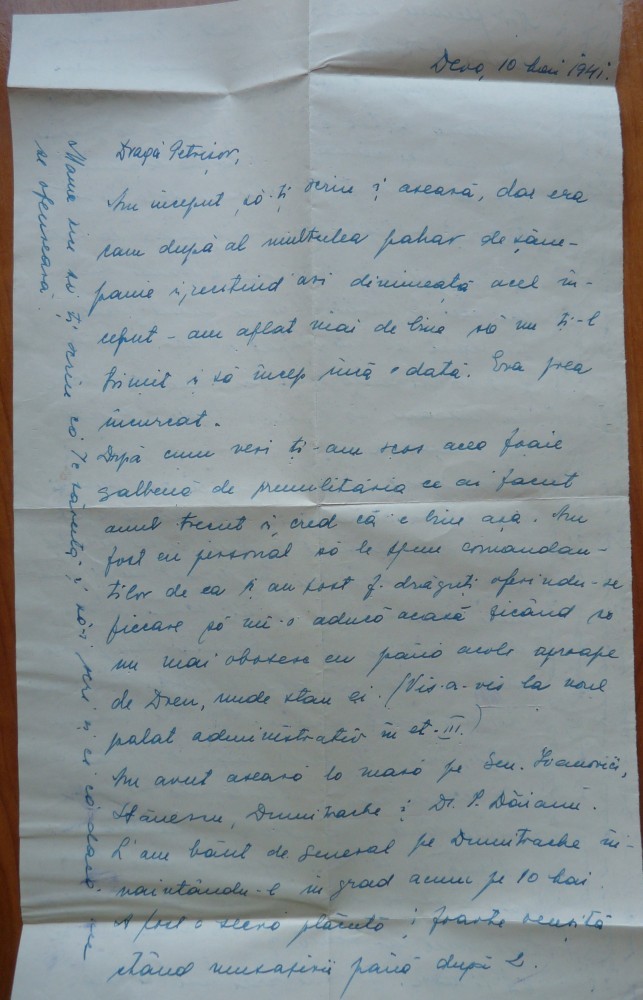 Deva, 10 Mai 1941.
Dragă Petrișor,
Am început să-ți scriu și aseară, dar era
cam după al multulea pahar de șam-
panie și, citind azi dimineață acel în-
ceput - am aflat mai de bine să nu ți-l
trimit și să încep încă odată. Era prea
încurcat.
După cum vezi ți-am scos acea foaie
galbenă de premilităria ce ai făcut
anul trecut și cred că e bine așa. Am
fost eu personal să le spun comandan-
ților de ea și au fost f. drăguți oferindu-se
fiecare să mi-o aducă acasă zicând să
nu mai obosesc eu până acolo aproape
de Dren, unde stau ei. (Vis-a-vis la noul
palat administrativ în et. III.)
Am avut aseară la masă pe Gen. Ivanovici,
Stănescu, Dumitrache și Dr. P. Dăianu.
L'am băut de General pe Dumitrache în-
naintându-l în grad acum pe 10 Mai.
A fost o seară plăcută și foarte reușită
stând musafirii până după 2.
Mama îmi să-ți scriu că te sărută și să-i scri și ei că dacă nu
se ofensează.